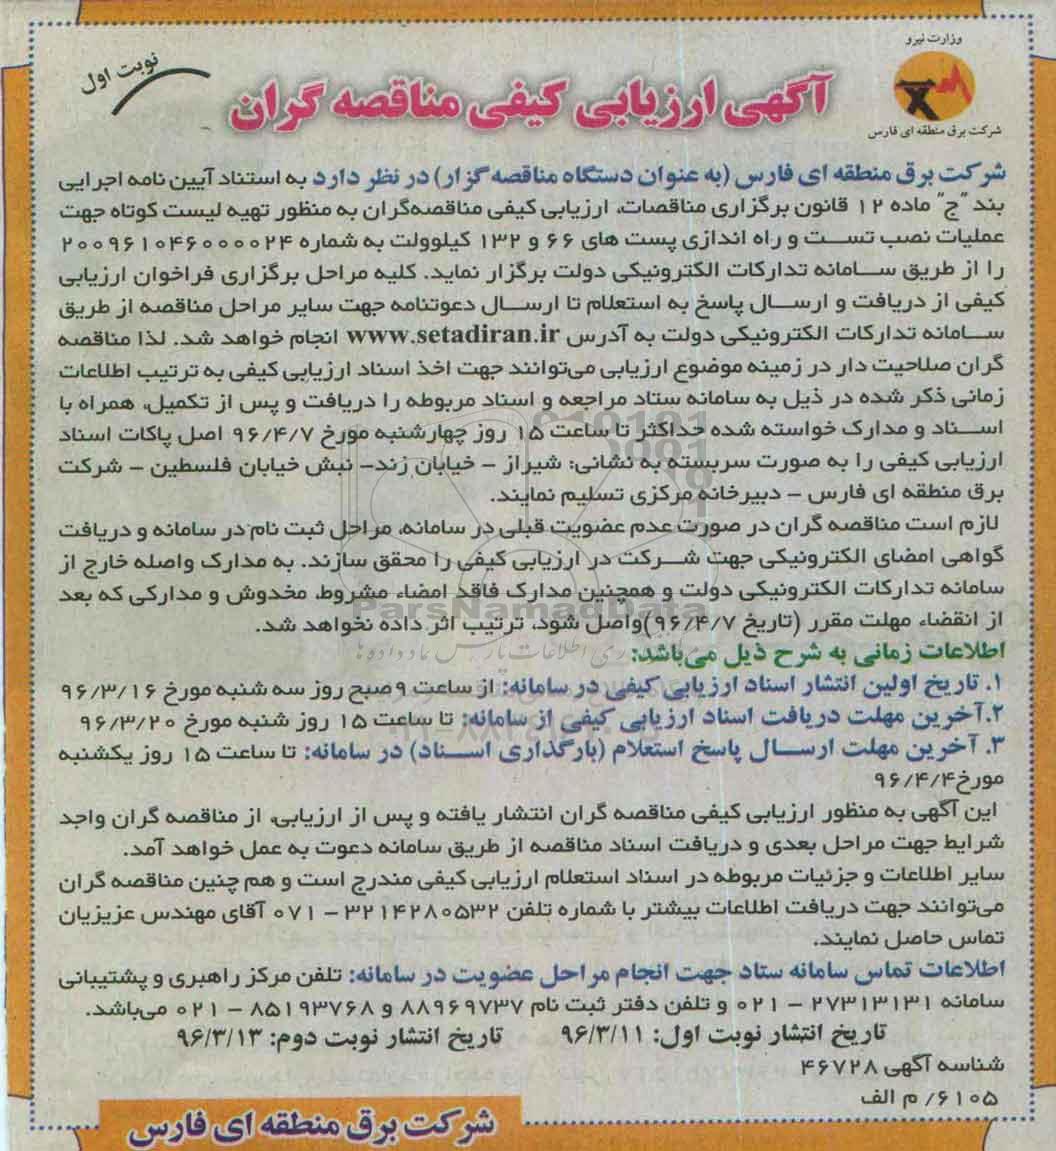 وزارت نیرو
شرکت برق منطقه ای فارس
نوبت اول
آگهی ارزیابی کیفی مناقصه گران
شرکت برق منطقه ای فارس (به عنوان دستگاه مناقصه گزار) در نظر دارد به استناد آیین نامه اجرایی
بند "ج" ماده ۱۲ قانون برگزاری مناقصات، ارزیابی کیفی مناقصه‌گران به منظور تهیه لیست کوتاه جهت
عملیات نصب تست و راه اندازی پست های ۶۶ و ۱۳۲ کیلوولت به شماره ۲۰۰۹۶۱۰۴۶۰۰۰۰۲۴
را از طریق سامانه تدارکات الکترونیکی دولت برگزار نماید. کلیه مراحل برگزاری فراخوان ارزیابی
کیفی از دریافت و ارسال پاسخ به استعلام تا ارسال دعوتنامه جهت سایر مراحل مناقصه از طریق
سامانه تدارکات الکترونیکی دولت به آدرس www.setadiran.ir انجام خواهد شد. لذا مناقصه
گران صلاحیت دار در زمینه موضوع ارزیابی می‌توانند جهت اخذ اسناد ارزیابی کیفی به ترتیب اطلاعات
زمانی ذکر شده در ذیل به سامانه ستاد مراجعه و اسناد مربوطه را دریافت و پس از تکمیل، همراه با
اسناد و مدارک خواسته شده حداکثر تا ساعت ۱۵ روز چهارشنبه مورخ ۹۶/۴/۷ اصل پاکات اسناد
ارزیابی کیفی را به صورت سربسته به نشانی: شیراز – خیابان زند– نبش خیابان فلسطین – شرکت
برق منطقه ای فارس – دبیرخانه مرکزی تسلیم نمایند.
لازم است مناقصه گران در صورت عدم عضویت قبلی در سامانه، مراحل ثبت نام در سامانه و دریافت
گواهی امضای الکترونیکی جهت شرکت در ارزیابی کیفی را محقق سازند. به مدارک واصله خارج از
سامانه تدارکات الکترونیکی دولت و همچنین مدارک فاقد امضاء مشروط، مخدوش و مدارکی که بعد
ParsNamadData
از انقضاء مهلت مقرر (تاریخ ۹۶/۴/۷)واصل شود، ترتیب اثر داده نخواهد شد.
اطلاعات زمانی به شرح ذیل می‌باشد:
۱. تاریخ اولین انتشار اسناد ارزیابی کیفی در سامانه: از ساعت ۹صبح روز سه شنبه مورخ ۹۶/۳/۱۶
۲.آخرین مهلت دریافت اسناد ارزیابی کیفی از سامانه: تا ساعت ۱۵ روز شنبه مورخ ۹۶/۳/۲۰
۳. آخرین مهلت ارسال پاسخ استعلام (بارگذاری اسناد) در سامانه: تا ساعت ۱۵ روز یکشنبه
مورخ۹۶/۴/۴
این آگهی به منظور ارزیابی کیفی مناقصه گران انتشار یافته و پس از ارزیابی، از مناقصه گران واجد
شرایط جهت مراحل بعدی و دریافت اسناد مناقصه از طریق سامانه دعوت به عمل خواهد آمد.
سایر اطلاعات و جزئیات مربوطه در اسناد استعلام ارزیابی کیفی مندرج است و هم چنین مناقصه گران
می‌توانند جهت دریافت اطلاعات بیشتر با شماره تلفن ۳۲۱۴۲۸۰۵۳۲ – ۰۷۱ آقای مهندس عزیزیان
تماس حاصل نمایند.
اطلاعات تماس سامانه ستاد جهت انجام مراحل عضویت در سامانه: تلفن مرکز راهبری و پشتیبانی
سامانه ۲۷۳۱۳۱۳۱ – ۰۲۱ و تلفن دفتر ثبت نام ۸۸۹۶۹۷۳۷ و ۸۵۱۹۳۷۶۸ – ۰۲۱ می‌باشد.
تاریخ انتشار نوبت اول: ۹۶/۳/۱۱ تاریخ انتشار نوبت دوم: ۹۶/۳/۱۳
شناسه آگهی ۴۶۷۲۸
۶۱۰۵/ م الف
شرکت برق منطقه ای فارس